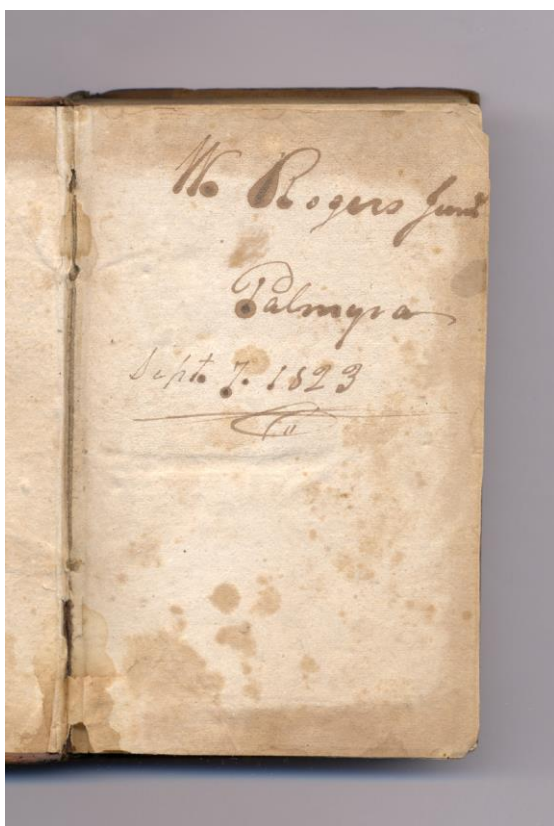 Wm Rogers Junr
Palmyra
Sept. 7. 1823